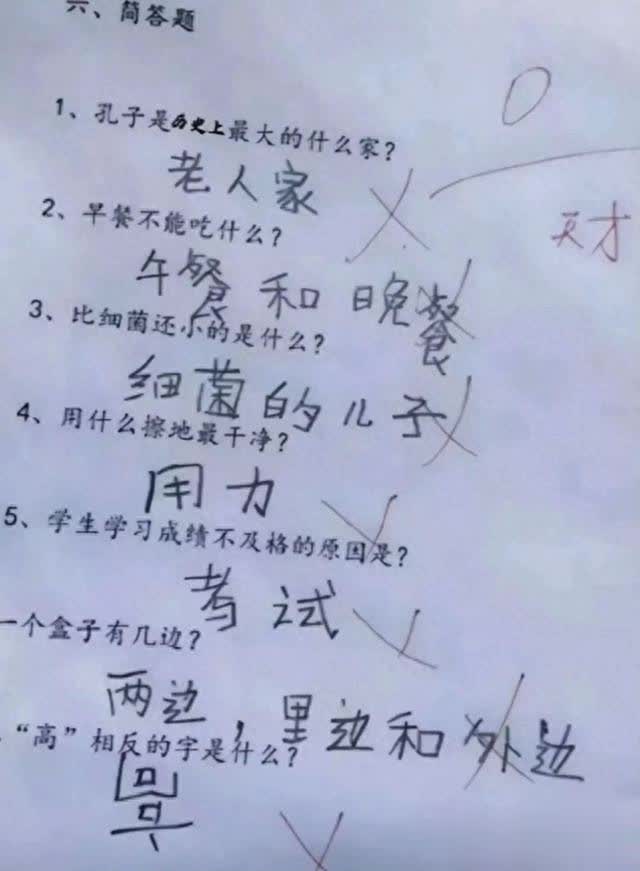 六、简答题
0
1、孔子是历史上最大的什么家?
老人家
天才
2、早餐不能吃什么?
午餐和晚餐
3、比细菌还小的是什么?
细菌的儿子
4、用什么擦地最干净?
用力
5、学生学习成绩不及格的原因是?
考试
一个盒子有几边?
两边,里边和外边
“高”相反的字是什么?